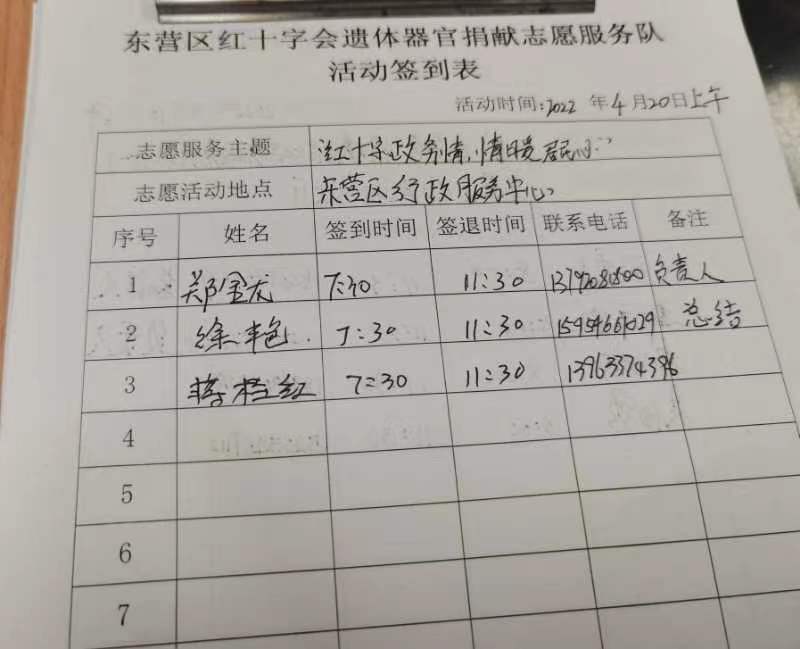 东营区红十字会遗体器官捐献志愿服务队
活动签到表
活动时间:2022 年 4 月 20 日上午
志愿服务主题 红十字政务情,情暖居民心
志愿活动地点 东营区行政服务中心
序号 姓名 签到时间 签退时间 联系电话 备注
1 郑金龙 7:30 11:30 负责人
2 徐 7:30 11:30 总结
3 红 7:30 11:30 13963374396
4
5
6
7